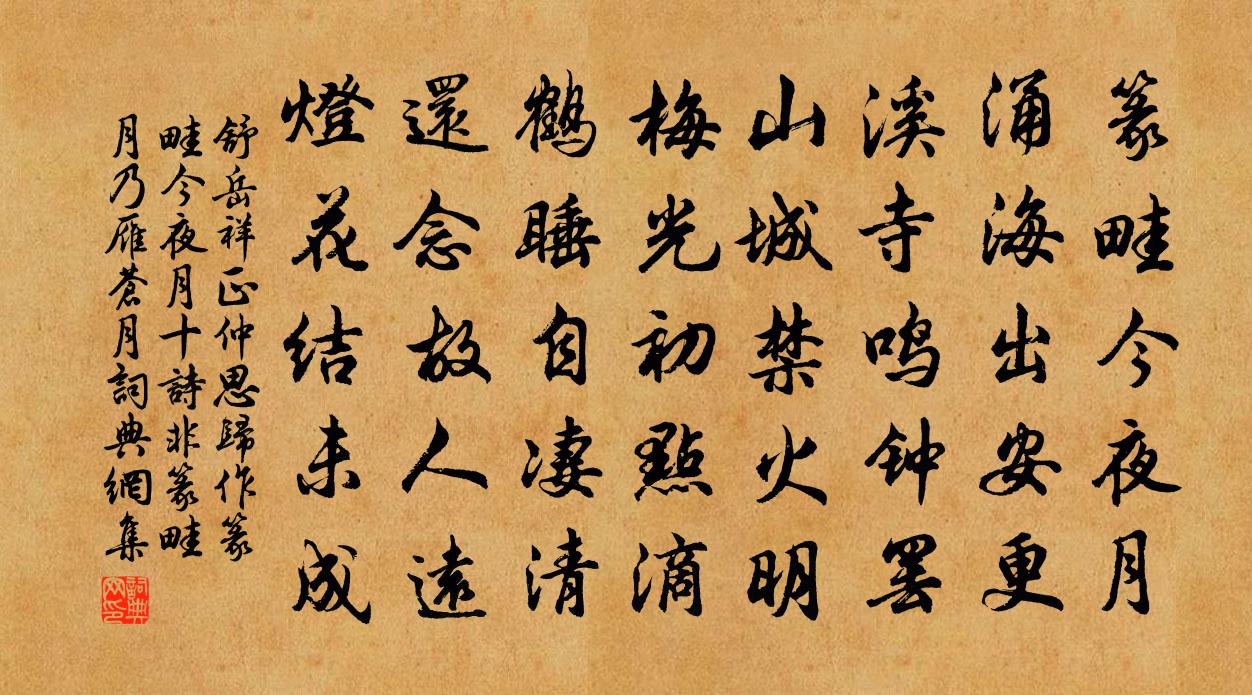 篆畦今夜月
涌海出安更
溪寺鸣钟罢
山城禁火明
梅光初點滴
鶴睡自凄清
還念故人遠
燈花结未成
舒岳祥正仲思歸作篆
畦今夜月十詩非篆畦
月乃雁蒼月詞典網集
詞典网印